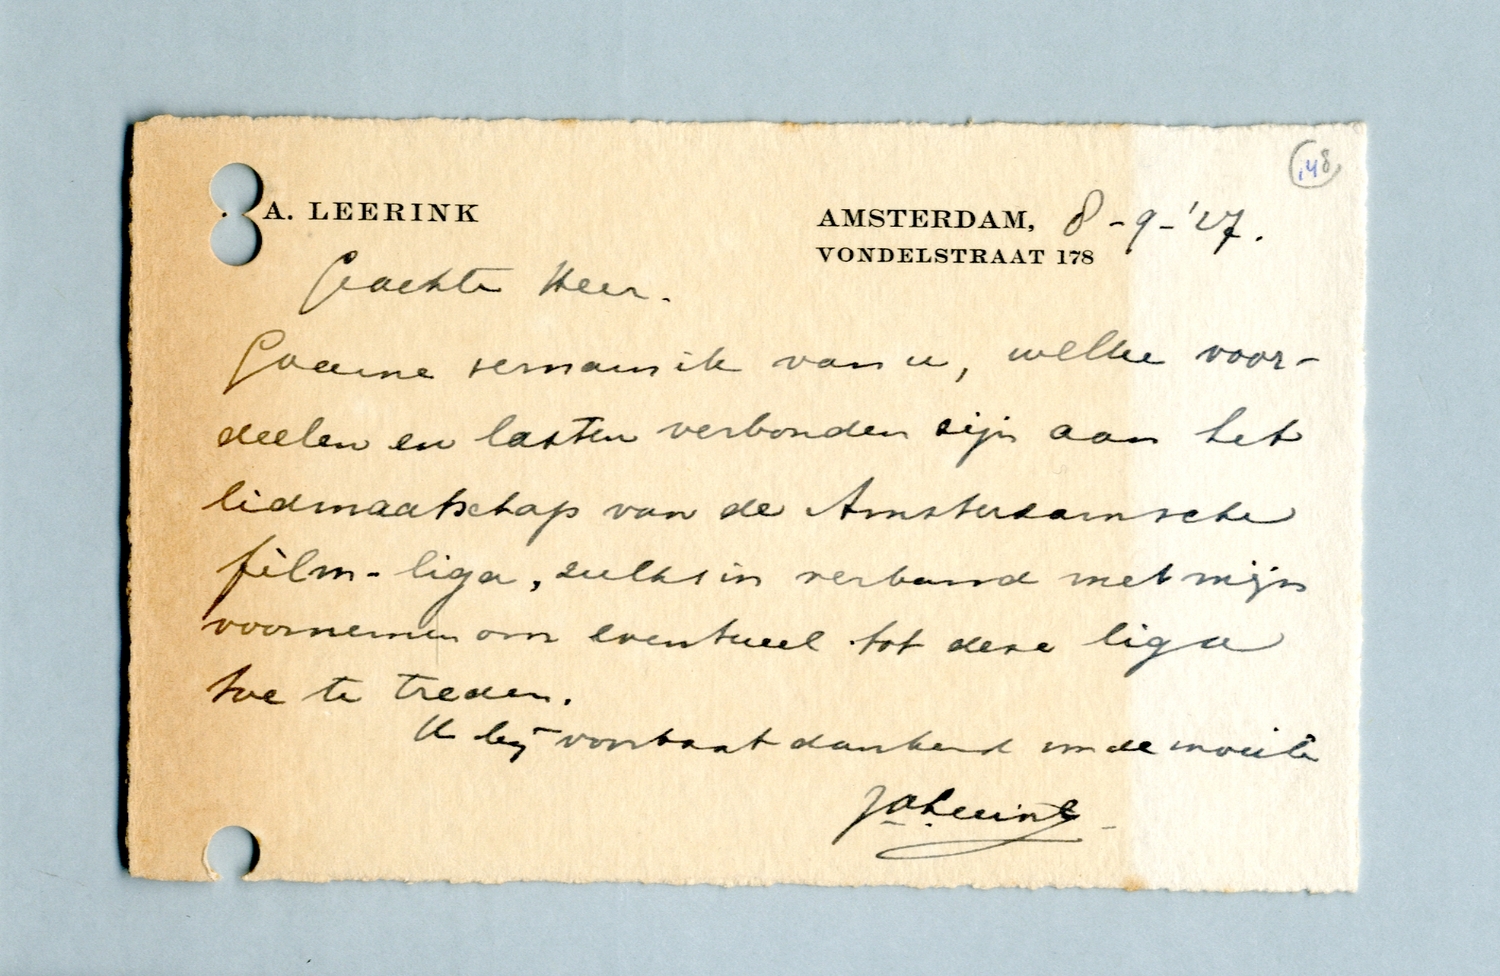 . A. LEERINK
AMSTERDAM, 8-9-'27.
VONDELSTRAAT 178
148
Geachte Heer.
Gaarne vernam ik van u, welke voor-
deelen en lasten verbonden zijn aan het
lidmaatschap van de Amsterdamsche
film-liga, zulks in verband met mijn
voornemen om eventueel tot deze liga
toe te treden.
U bij voorbaat dankend voor de moeite
JALeerink